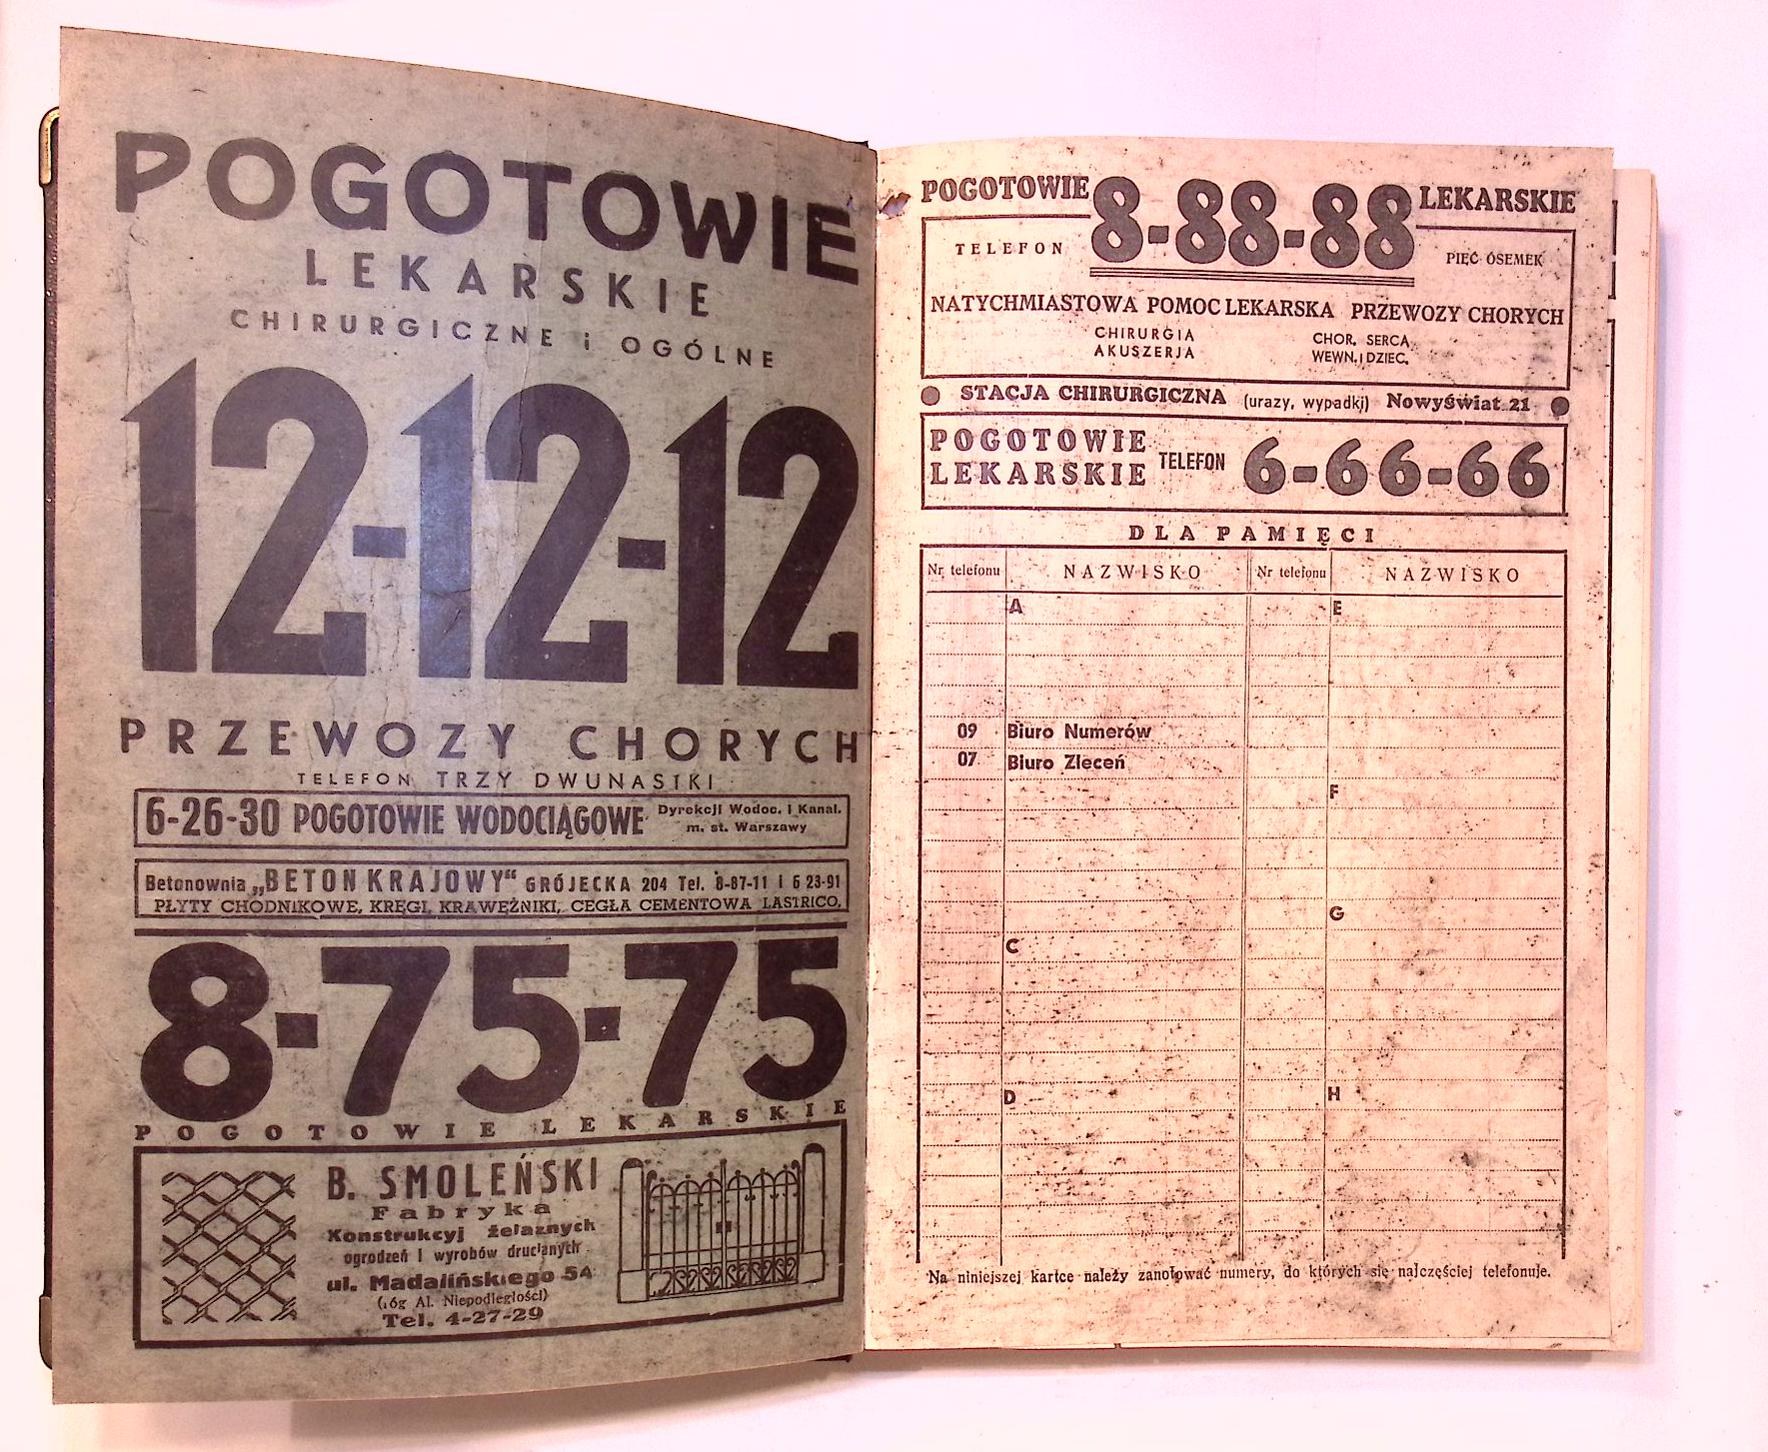 POGOTOWIE
LEKARSKIE
CHIRURGICZNE i OGÓLNE
12-12-12
PRZEWOZY CHORYCH
TELEFON TRZY DWUNASTKI
6-26-30 POGOTOWIE WODOCIĄGOWE Dyrekcji Wodoc. i Kanal.
m. st. Warszawy
Betonownia „BETON KRAJOWY“ GRÓJECKA 204 Tel. 8-87-11 i 6 23-91
PŁYTY CHODNIKOWE, KRĘGI, KRAWĘŻNIKI, CEGŁA CEMENTOWA LASTRICO,
8-75-75
POGOTOWIE LEKARSKIE
B. SMOLEŃSKI
Fabryka
Konstrukcyj żelaznych
ogrodzeń i wyrobów drucianych
ul. Madalińskiego 54
(róg Al. Niepodległości)
Tel. 4-27-29
POGOTOWIE 8-88-88 LEKARSKIE
TELEFON PIĘĆ ÓSEMEK
NATYCHMIASTOWA POMOC LEKARSKA PRZEWOZY CHORYCH
CHIRURGIA CHOR. SERCA,
AKUSZERJA WEWN. i DZIEC.
STACJA CHIRURGICZNA (urazy, wypadki) Nowyświat 21
POGOTOWIE
LEKARSKIE TELEFON 6-66-66
DLA PAMIĘCI
Nr telefonu NAZWISKO Nr telefonu NAZWISKO
A E
09 Biuro Numerów
07 Biuro Zleceń
F
G
C
D H
Na niniejszej kartce należy zanotować numery, do których się najczęściej telefonuje.